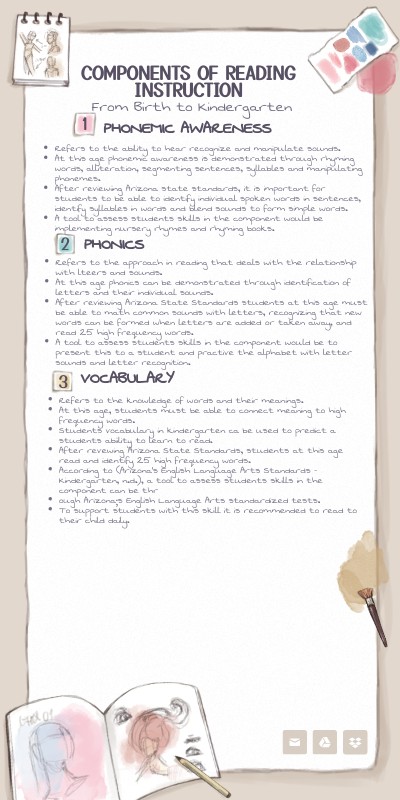 COMPONENTS OF READING
INSTRUCTION
From Birth to Kindergarten
1 PHONEMIC AWARENESS
• Refers to the ability to hear recognize and manipulate sounds.
• At this age phonemic awareness is demonstrated through rhyming
words, alliteration, segmenting sentences, syllables and manipulating
phonemes.
• After reviewing Arizona state standards, it is important for
students to be able to identify individual spoken words in sentences,
identify syllables in words and blend sounds to form simple words.
• A tool to assess students skills in the component would be
implementing nursery rhymes and rhyming books.
2 PHONICS
• Refers to the approach in reading that deals with the relationship
with lteers and sounds.
• At this age phonics can be demonstrated through identification of
letters and their individual sounds.
• After reviewing Arizona State Standards students at this age must
be able to math common sounds with letters, recognizing that new
words can be formed when letters are added or taken away, and
read 25 high frequency words.
• A tool to assess students skills in the component would be to
present this to a student and practive the alphabet with letter
sounds and letter recognition.
3 VOCABULARY
• Refers to the knowledge of words and their meanings.
• At this age, students must be able to connect meaning to high
frequency words.
• Students vocabulary in kindergarten ca be used to predict a
students ability to learn to read.
• After reviewing Arizona State Standards, students at this age
read and identify 25 high frequency words.
• According to (Arizona's English Language Arts Standards -
Kindergarten, n.d.), a tool to assess students skills in the
component can be thr
• ough Arizona's English Language Arts standardized tests.
• To support students with this skill it is recommended to read to
their child daily.